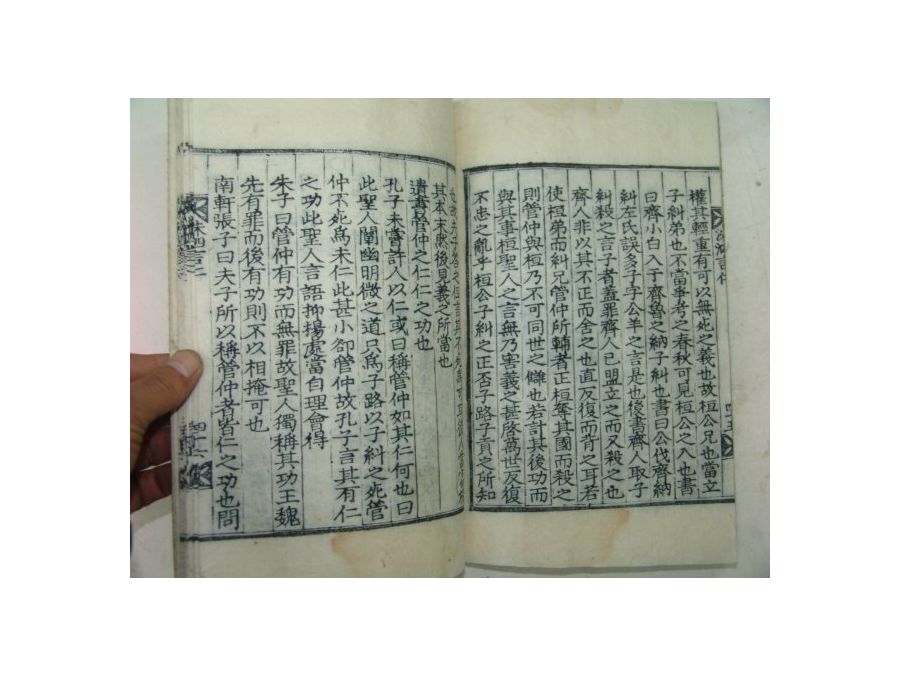 權其輕重有可以無死之義也故桓公兄也當立
子糾弟也不當事考之春秋可見桓公之入也書
曰齊小白入于齊魯之納子糾也書曰公伐齊納
糾左氏誤多子字公羊之言是也後書齊人取子
糾殺之言子者蓋罪齊人已盟立之而又殺之也
齊人非以其不正而舍之也直反復而背之耳若
使桓弟而糾兄管仲所輔者正桓奪其國而殺之
則管仲與桓乃不可同世之讎也若計其後功而
與其事桓聖人之言無乃害義之甚啓萬世反復
不忠之亂乎桓公子糾之正否子路子貢之所知
其本末然後見義之所當也
遺書管仲之仁仁之功也
孔子未嘗許人以仁或曰稱管仲如其仁何也曰
此聖人闡幽明微之道只爲子路以子糾之死管
仲不死爲未仁此甚小卻管仲故孔子言其有仁
之功此聖人言語抑揚處當自理會得
朱子曰管仲有功而無罪故聖人獨稱其功王魏
先有罪而後有功則不以相掩可也
南軒張子曰夫子所以稱管仲者皆仁之功也問